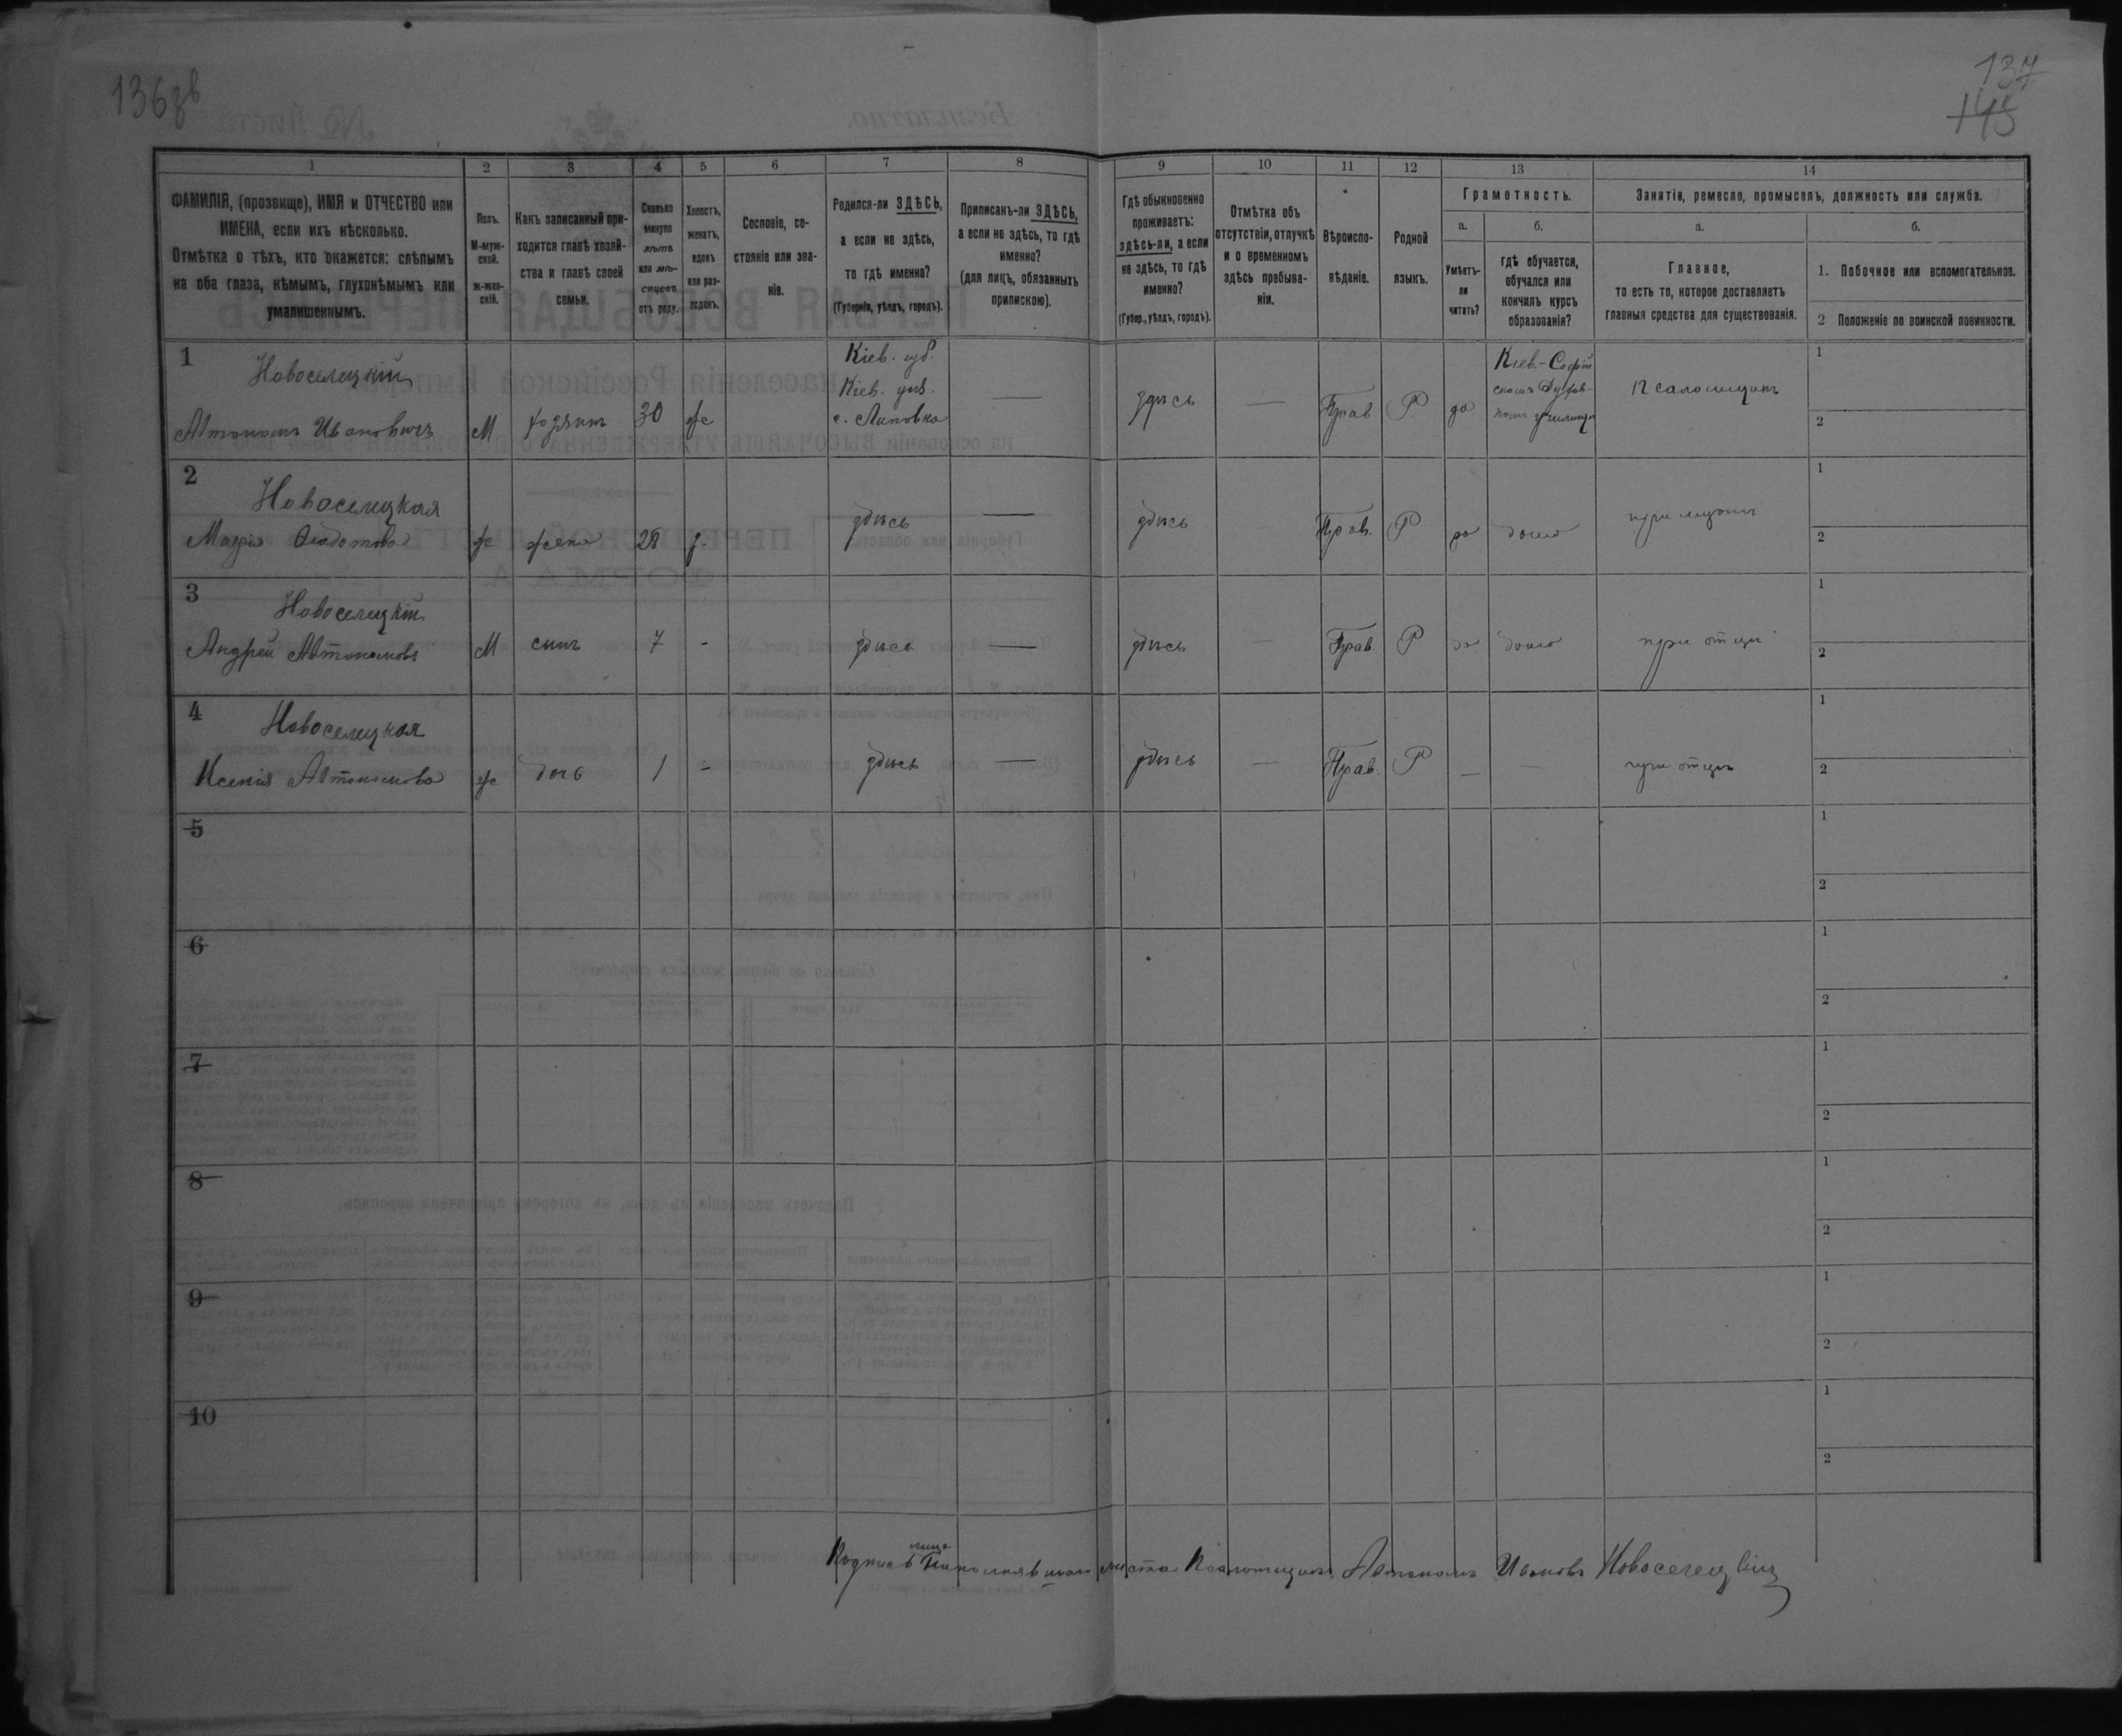 136 зв
137
145
1 2 3 4 5 6 7 8 9 10 11 12 13 14
ФАМИЛІЯ, (прозвище), ИМЯ и ОТЧЕСТВО или
ИМЕНА, если ихъ нѣсколько.
Отмѣтка о тѣхъ, кто окажется: слѣпымъ
на оба глаза, нѣмымъ, глухонѣмымъ или
умалишеннымъ.
Полъ.
М-муж-
ской.
ж-жен-
скій.
Какъ записанный при-
ходится главѣ хозяй-
ства и главѣ своей
семьи.
Сколько
минуло
лѣтъ
или мѣ-
сяцевъ
отъ роду.
Холостъ,
женатъ,
вдовъ
или раз-
веденъ.
Сословіе, со-
стояніе или зва-
ніе.
Родился-ли ЗДѢСЬ,
а если не здѣсь,
то гдѣ именно?
(Губернія, уѣздъ, городъ).
Приписанъ-ли ЗДѢСЬ,
а если не здѣсь, то гдѣ
именно?
(для лицъ, обязанныхъ
припискою).
Гдѣ обыкновенно
проживаетъ:
здѣсь-ли, а если
не здѣсь, то гдѣ
именно?
(Губер., уѣздъ, городъ).
Отмѣтка объ
отсутствіи, отлучкѣ
и о временномъ
здѣсь пребыва-
ніи.
Вѣроиспо-
вѣданіе.
Родной
языкъ.
Грамотность.
а.
Умѣетъ-
ли
читать?
б.
гдѣ обучается,
обучался или
кончилъ курсъ
образованія?
Занятіе, ремесло, промыселъ, должность или служба.
а.
Главное,
то есть то, которое доставляетъ
главныя средства для существованія.
б.
1. Побочное или вспомогательное.
2 Положеніе по воинской повинности.
1 Новоселецкій
Автономъ Ивановичъ М хозяинъ 30 ж
Кіев. губ.
Кіев. уѣз.
с. Лаповка
— здѣсь — Прав Р да
Кіев.-Софій
скомъ Духов-
номъ училищѣ
Псаломщикъ
1
2
2 Новоселецкая
Марія Ѳеодотова ж жена 28 з. здѣсь — здѣсь Прав. Р да дома при мужѣ
1
2
3 Новоселецкій
Андрей Автономовъ М сынъ 7 - здѣсь — здѣсь — Прав. Р да дома при отцѣ
1
2
4 Новоселецкая
Ксенія Автономова ж дочь 1 - здѣсь — здѣсь — Прав. Р — — при отцѣ
1
2
5
1
2
6
1
2
7
1
2
8
1
2
9
1
2
10
1
2
лица
Подпись наполнявшаго листа Псаломщикъ Автономъ Ивановъ Новоселецкій